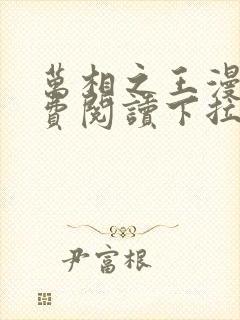 萬相之王漫
費閱讀下拉
尹富根